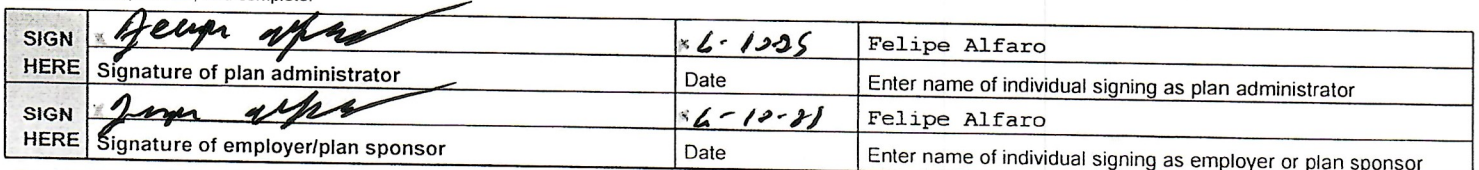 SIGN HERE
Felipe Alfaro
Signature of plan administrator
Date
Enter name of individual signing as plan administrator
SIGN HERE
Felipe Alfaro
Signature of employer/plan sponsor
Date
Enter name of individual signing as employer or plan sponsor